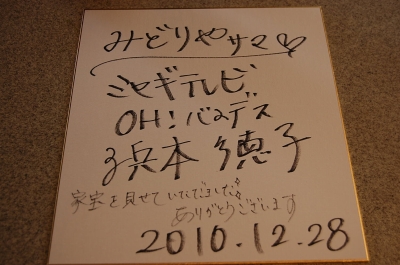 みどりやサマ♡
ミヤギテレビ
OH!バンデス
浜本穂子
家宝を見せていただきした
ありがとうございます
2010.12.28